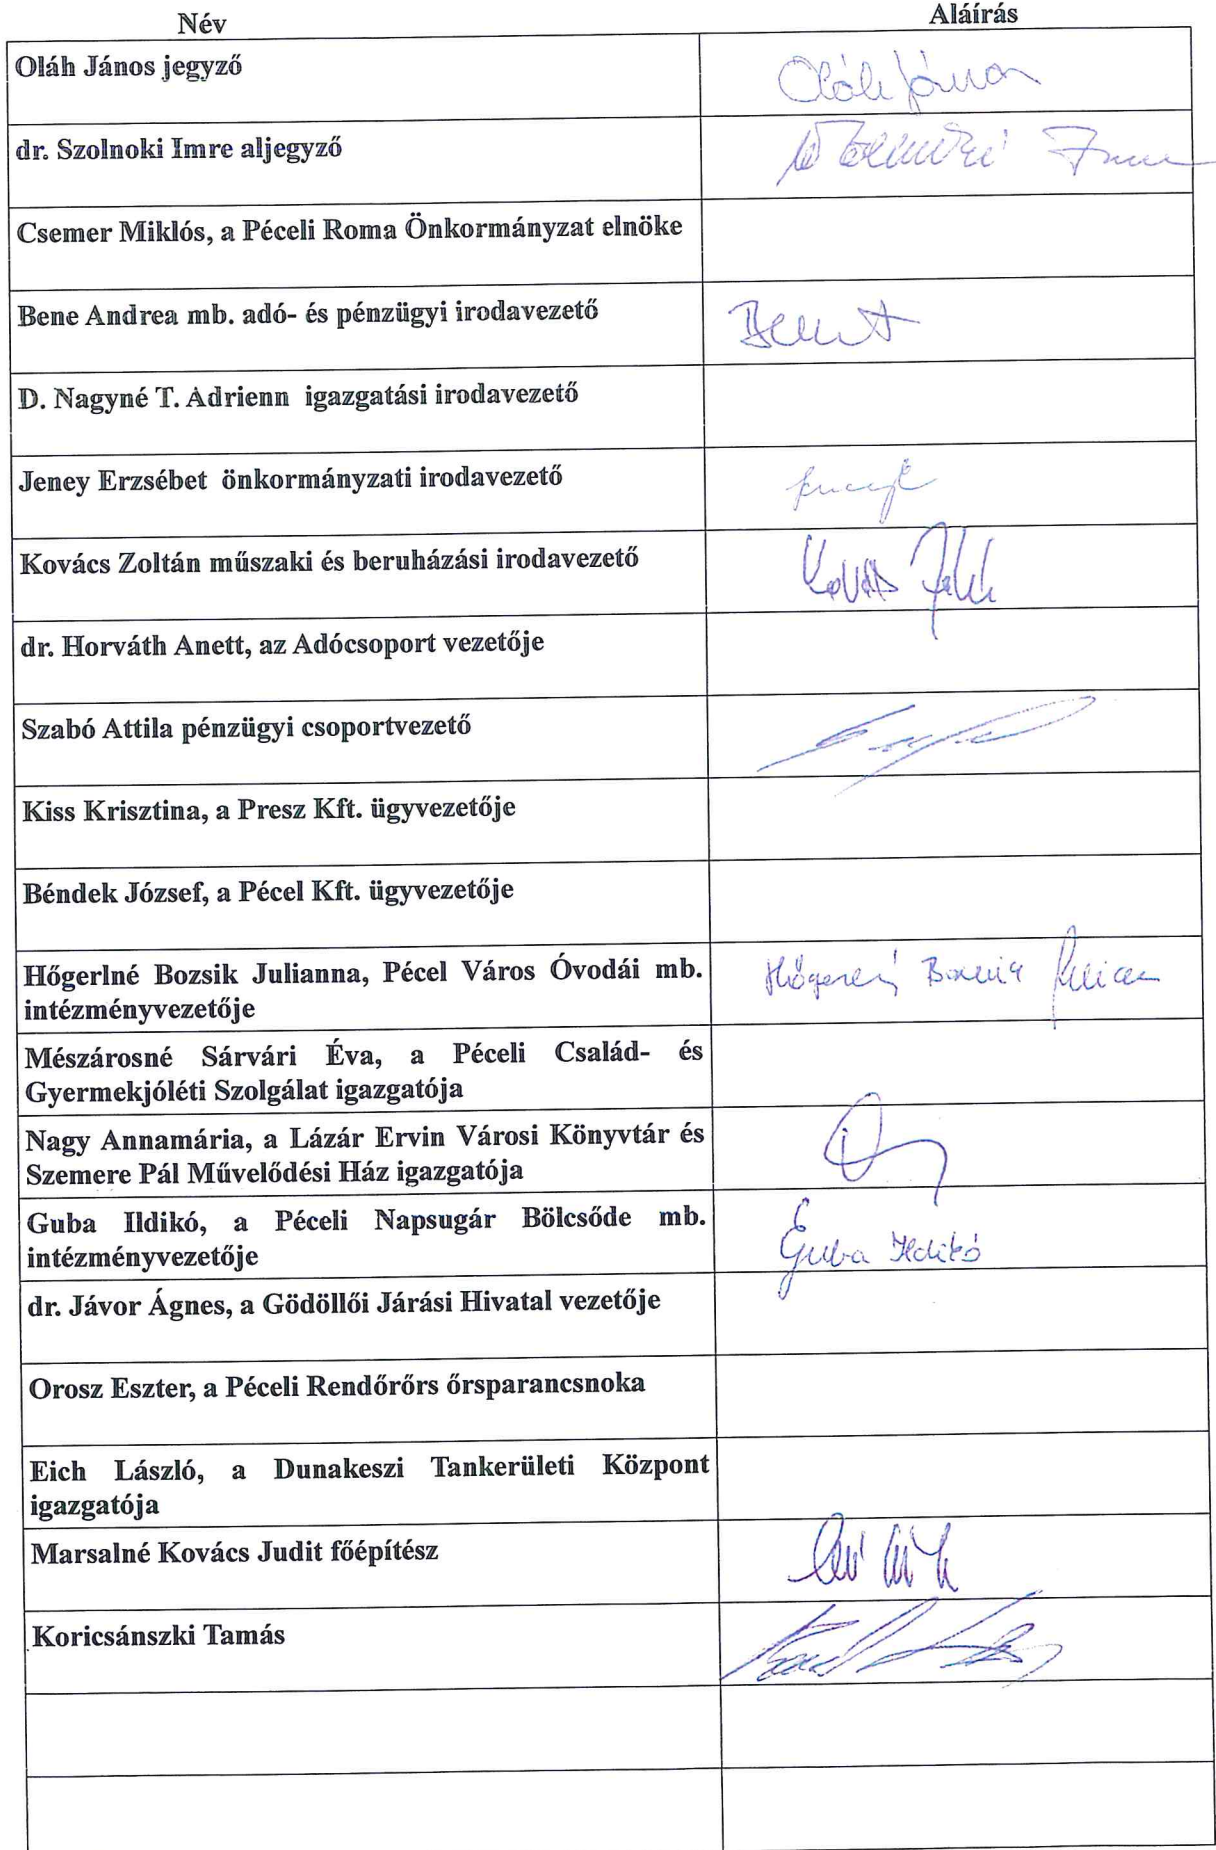 Név Aláírás
Oláh János jegyző Oláh János
dr. Szolnoki Imre aljegyző Szolnoki Imre
Csemer Miklós, a Péceli Roma Önkormányzat elnöke
Bene Andrea mb. adó- és pénzügyi irodavezető Bene A
D. Nagyné T. Adrienn igazgatási irodavezető
Jeney Erzsébet önkormányzati irodavezető
Kovács Zoltán műszaki és beruházási irodavezető Kovács
dr. Horváth Anett, az Adócsoport vezetője
Szabó Attila pénzügyi csoportvezető
Kiss Krisztina, a Presz Kft. ügyvezetője
Béndek József, a Pécel Kft. ügyvezetője
Hőgerlné Bozsik Julianna, Pécel Város Óvodái mb.
intézményvezetője
Mészárosné Sárvári Éva, a Péceli Család- és
Gyermekjóléti Szolgálat igazgatója
Nagy Annamária, a Lázár Ervin Városi Könyvtár és
Szemere Pál Művelődési Ház igazgatója
Guba Ildikó, a Péceli Napsugár Bölcsőde mb.
intézményvezetője Guba Ildikó
dr. Jávor Ágnes, a Gödöllői Járási Hivatal vezetője
Orosz Eszter, a Péceli Rendőrőrs őrsparancsnoka
Eich László, a Dunakeszi Tankerületi Központ
igazgatója
Marsalné Kovács Judit főépítész
Koricsánszki Tamás